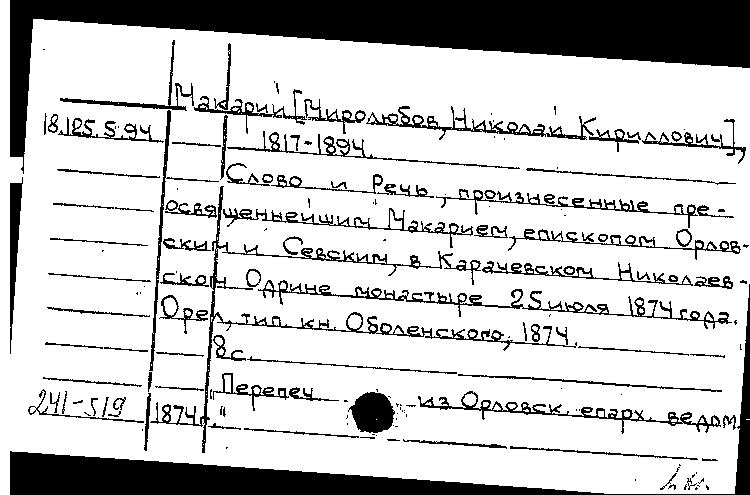 Макарий [Миролюбов, Николай Кириллович],
18.125.5.94
1817-1894.
Слово и Речь, произнесенные пре-
освященнейшим Макарием, епископом Орлов-
ским и Севским, в Карачевском Николаев-
ском Одрине монастыре 25 июля 1874 года.
Орел, тип. кн. Оболенского, 1874.
8 с.
"Перепеч из Орловск. епарх. ведом.
241-519 1874 г."